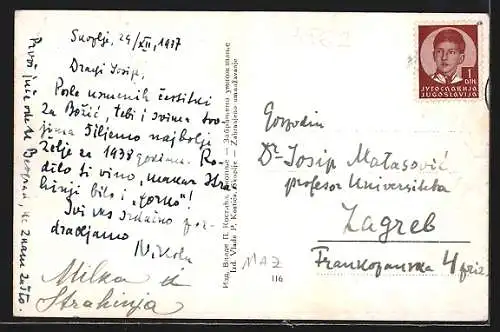 Skoplje, 29/XII, 1937
Dragi Josipe,
Posle usmenih čestitki
za Božić, tebi i svima tvo-
jima šiljemo najbolje
želje za 1938 godinu. Ro-
dilo ti vino, makar Stra-
hinji bilo i „gorko"!
Svi vas srdačno poz-
dravljamo
Nikola
Milka i
Strahinja
Изд. Владе П. Костића, Скопље — Забрањено умножавање
Izd. Vlade P. Kostića, Skoplje — Zabranjeno umnožavanje
MAZ
116
1 DIN.
ЈУГОСЛАВИЈА
JUGOSLAVIJA
Gospodin
Dr Josip Matasović
profesor Univerziteta
Zagreb
Frankopanska 4